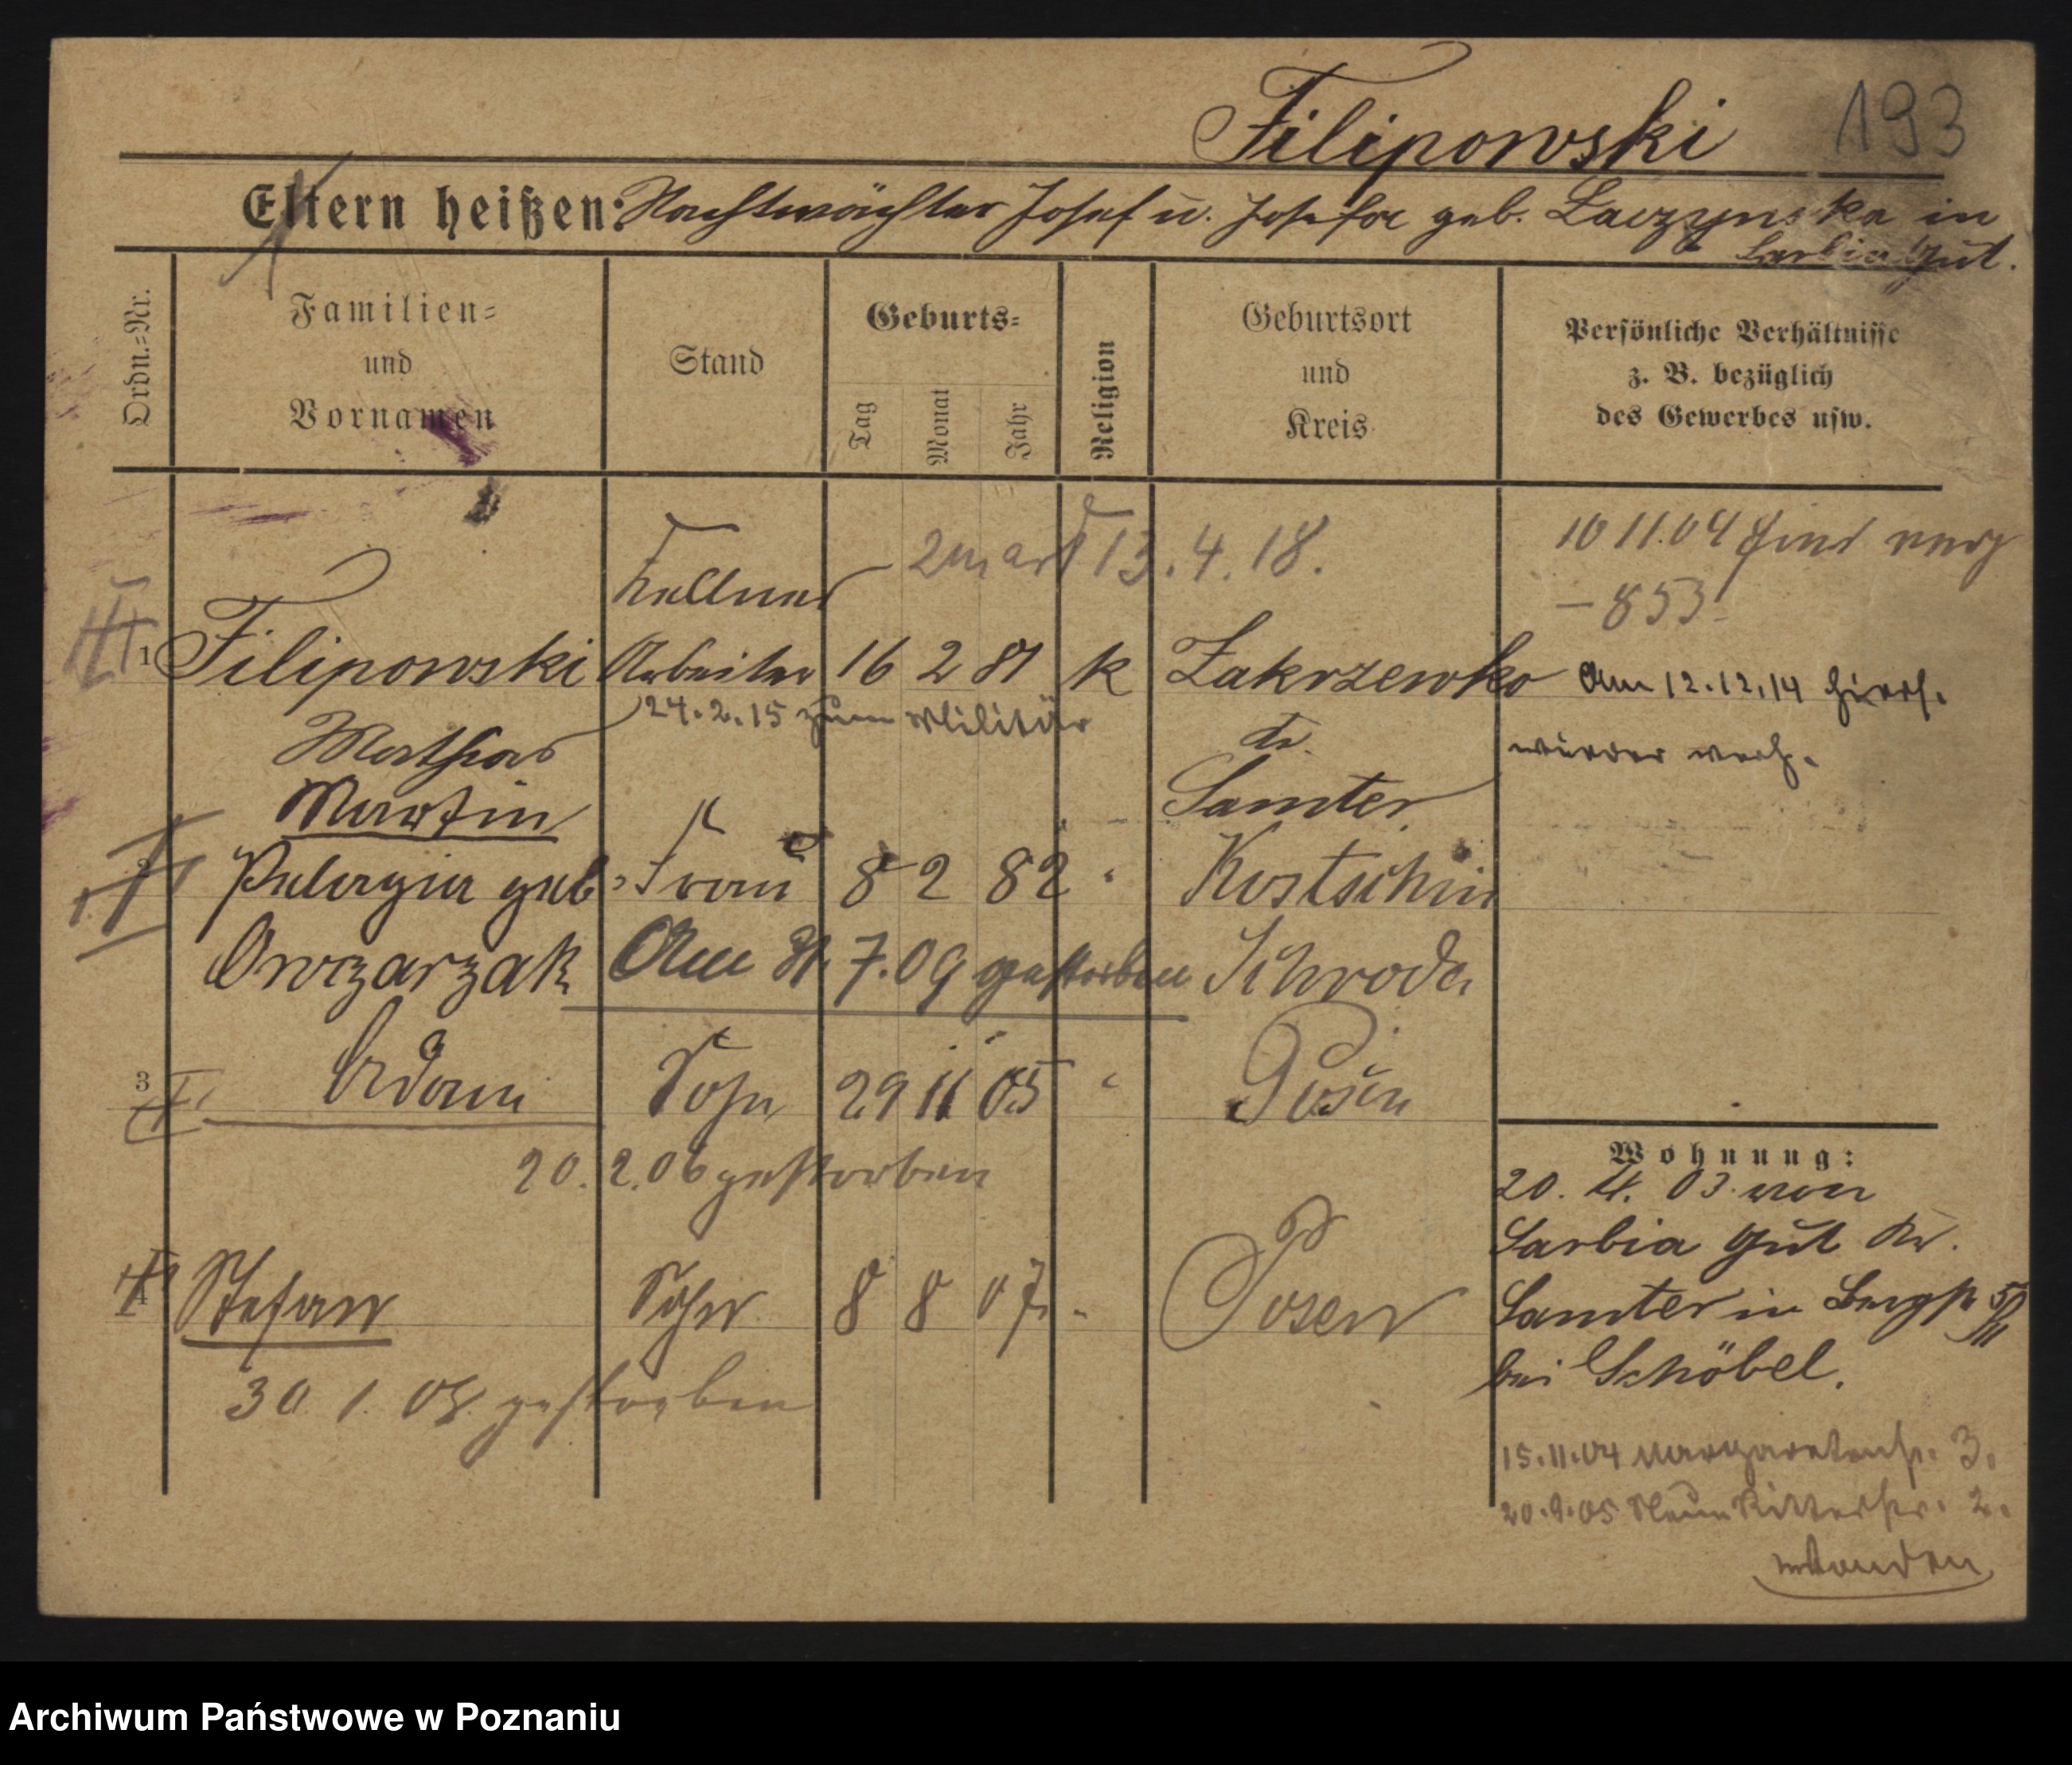 Filipowski 193
Eltern heißen: Nachtwächter Josef u. Josefa geb. Laczynska in
Sarbia Gut.
Ordn.=Nr.
Familien=
und
Vornamen
Stand
Geburts=
Tag
Monat
Jahr
Religion
Geburtsort
und
Kreis
Persönliche Verhältnisse
z. B. bezüglich
des Gewerbes usw.
10 11.04
13.4.18.
Kellner
– 853.
1 Filipowski Arbeiter 16 2 81 k Zakrzewko Am 12.12.14
24.2.15 zum Militär
Mathias Kr.
Martin Samter
2 Pelagia geb. Frau 8 2 82 " Kostschin
Owczarzak Am 31.7.09 gestorben Schroda
3 Adam Sohn 29 11 05 " Posen
20.2.06 gestorben
4 Stefan Sohn 8 8 07 " Posen
30.1.08. gestorben
Wohnung:
20. 4. 03 von
Sarbia Gut Kr.
Samter in Bergstr
bei Schöbel.
15.11.04 Margaretenstr. 3.
20.9.05 Neue Ritterstr. 2.